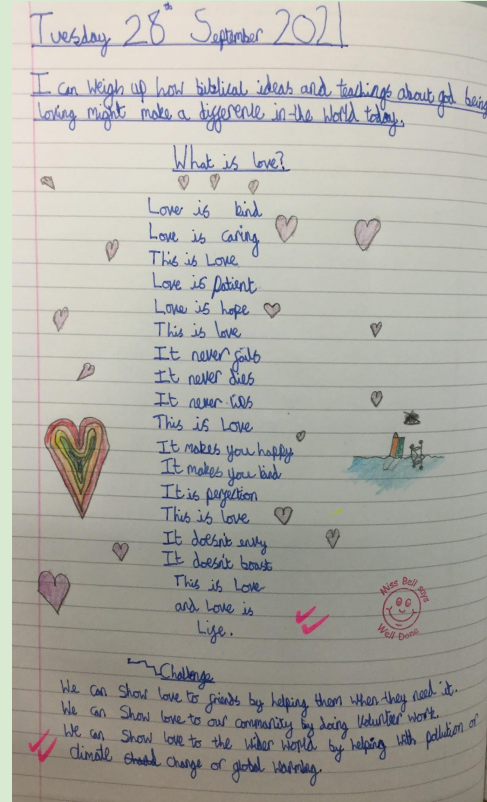 Tuesday 28th September 2021
I can weigh up how biblical ideas and teachings about god being
loving might make a difference in the world today.
What is love?
Love is kind
Love is caring
This is Love
Love is patient
Love is hope
This is love
It never fails
It never dies
It never
This is Love
It makes you happy
It makes you kind
It is perfection
This is love
It doesn't envy
It doesn't boast
This is Love
and Love is
Life.
Miss Bell says
Well Done
Challenge
We can show love to friends by helping them when they need it.
We can show love to our community by doing volunteer work.
We can show love to the wider world by helping with pollution or
climate change or global warming.